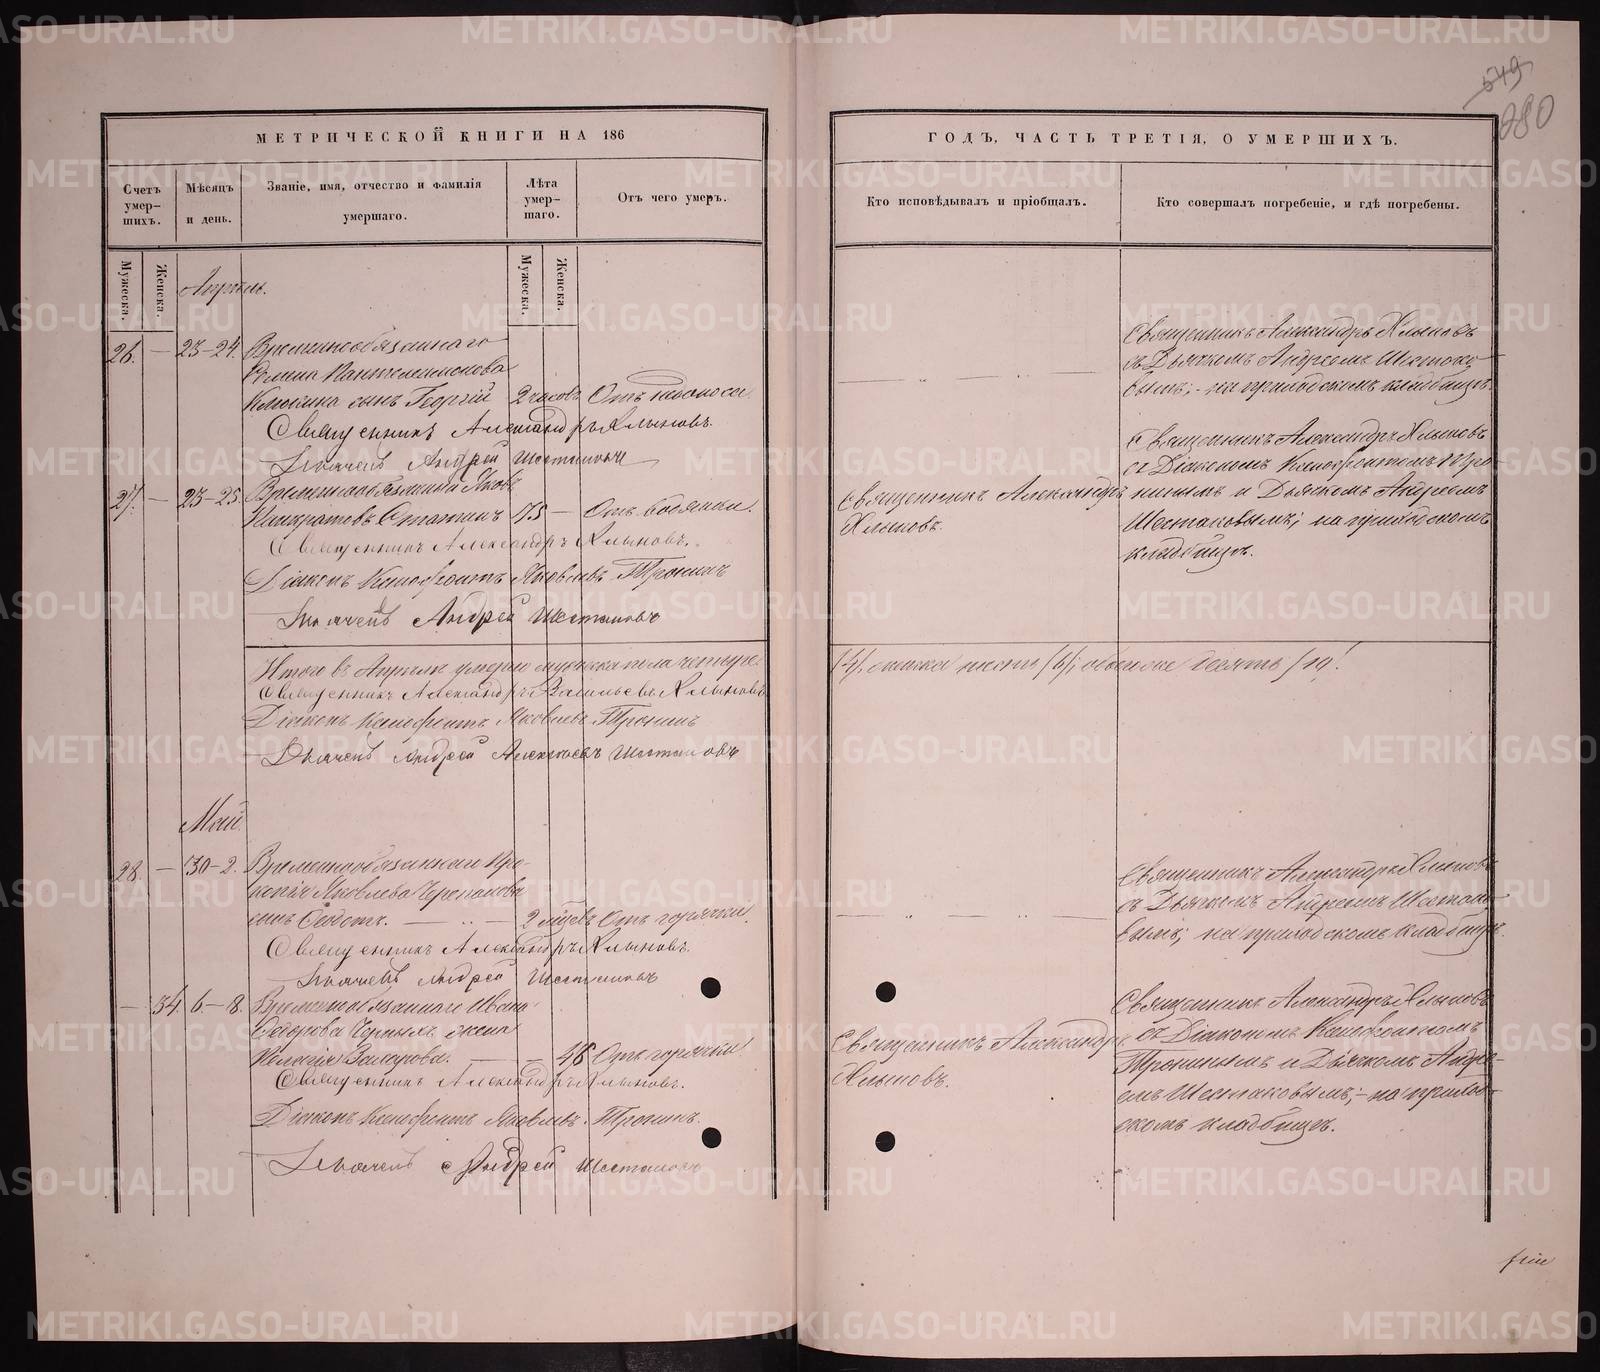 549
280
МЕТРИЧЕСКОЙ КНИГИ НА 186
Счетъ умер-шихъ.
Мѣсяцъ и день.
Званіе, имя, отчество и фамилія умершаго.
Лѣта умер-шаго.
Отъ чего умеръ.
Мужеска.
Женска.
Мужеска.
Женска.
Апрѣль.
26. — 23–24. Временнообязаннаго
сынъ Георгій 2 часовъ Отъ поноса.
Священникъ Александръ Хлыновъ.
Дьячекъ Андрей Шестаковъ
27. — 23–25. Временнообязанный Яковъ
Панкратовъ 75 — Отъ водянки.
Священникъ Александръ Хлыновъ.
Діаконъ Ксенофонтъ Яковлевъ Тронинъ
Дьячекъ Андрей Шестаковъ
Итого въ Апрѣлѣ умерло мужеска пола четыре
Священникъ Александръ Васильевъ Хлыновъ
Діаконъ Ксенофонтъ Яковлевъ Тронинъ
Дьячекъ Андрей Алексѣевъ Шестаковъ
Май.
28. — 30–2. Временнообязаннаго Про-
копія Яковлева Черепанова
сынъ Ѳедотъ. — „ — 2 мѣсяцъ Отъ горячки.
Священникъ Александръ Хлыновъ.
Дьячекъ Андрей Шестаковъ
— 34. 6–8. Временнообязаннаго Ивана
Черныхъ жена
— — 46 Отъ горячки.
Священникъ Александръ Хлыновъ.
Діаконъ Ксенофонтъ Яковлевъ Тронинъ.
Дьячекъ Андрей Шестаковъ
ГОДЪ, ЧАСТЬ ТРЕТІЯ, О УМЕРШИХЪ.
Кто исповѣдывалъ и пріобщалъ.
Кто совершалъ погребеніе, и гдѣ погребены.
Священникъ Александръ Хлыновъ
съ Дьячкомъ Андреемъ Шестако-
вымъ; на приходскомъ кладбищѣ.
Священникъ Александръ
Хлыновъ.
Священникъ Александръ Хлыновъ
съ Діакономъ Ксенофонтомъ Тро-
нинымъ и Дьячкомъ Андреемъ
Шестаковымъ; на приходскомъ
кладбищѣ.
/4/. женска шесть /6/; обоего десять /10/.
Священникъ Александръ Хлыновъ
съ Дьячкомъ Андреемъ Шестако-
вымъ; на приходскомъ кладбищѣ.
Священникъ Александръ
Хлыновъ.
Священникъ Александръ Хлыновъ
съ Діакономъ Ксенофонтомъ
Тронинымъ и Дьячкомъ Андре-
емъ Шестаковымъ; – на приход-
скомъ кладбищѣ.
METRIKI.GASO-URAL.RU